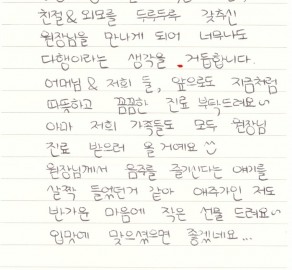 친절&외모를 두루두루 갖추신
원장님을 만나게 되어 너무나도
다행이라는 생각을 거듭합니다.
어머님 & 저희 둘, 앞으로도 지금처럼
따뜻하고 꼼꼼한 진료 부탁드려요~
아마 저희 가족들도 모두 원장님
진료 받으러 올 거예요
원장님께서 음주를 즐기신다는 얘기를
살짝 들었던거 같아 애주가인 저도
반가운 마음에 작은 선물 드려요~
입맛에 맞으셨으면 좋겠네요...